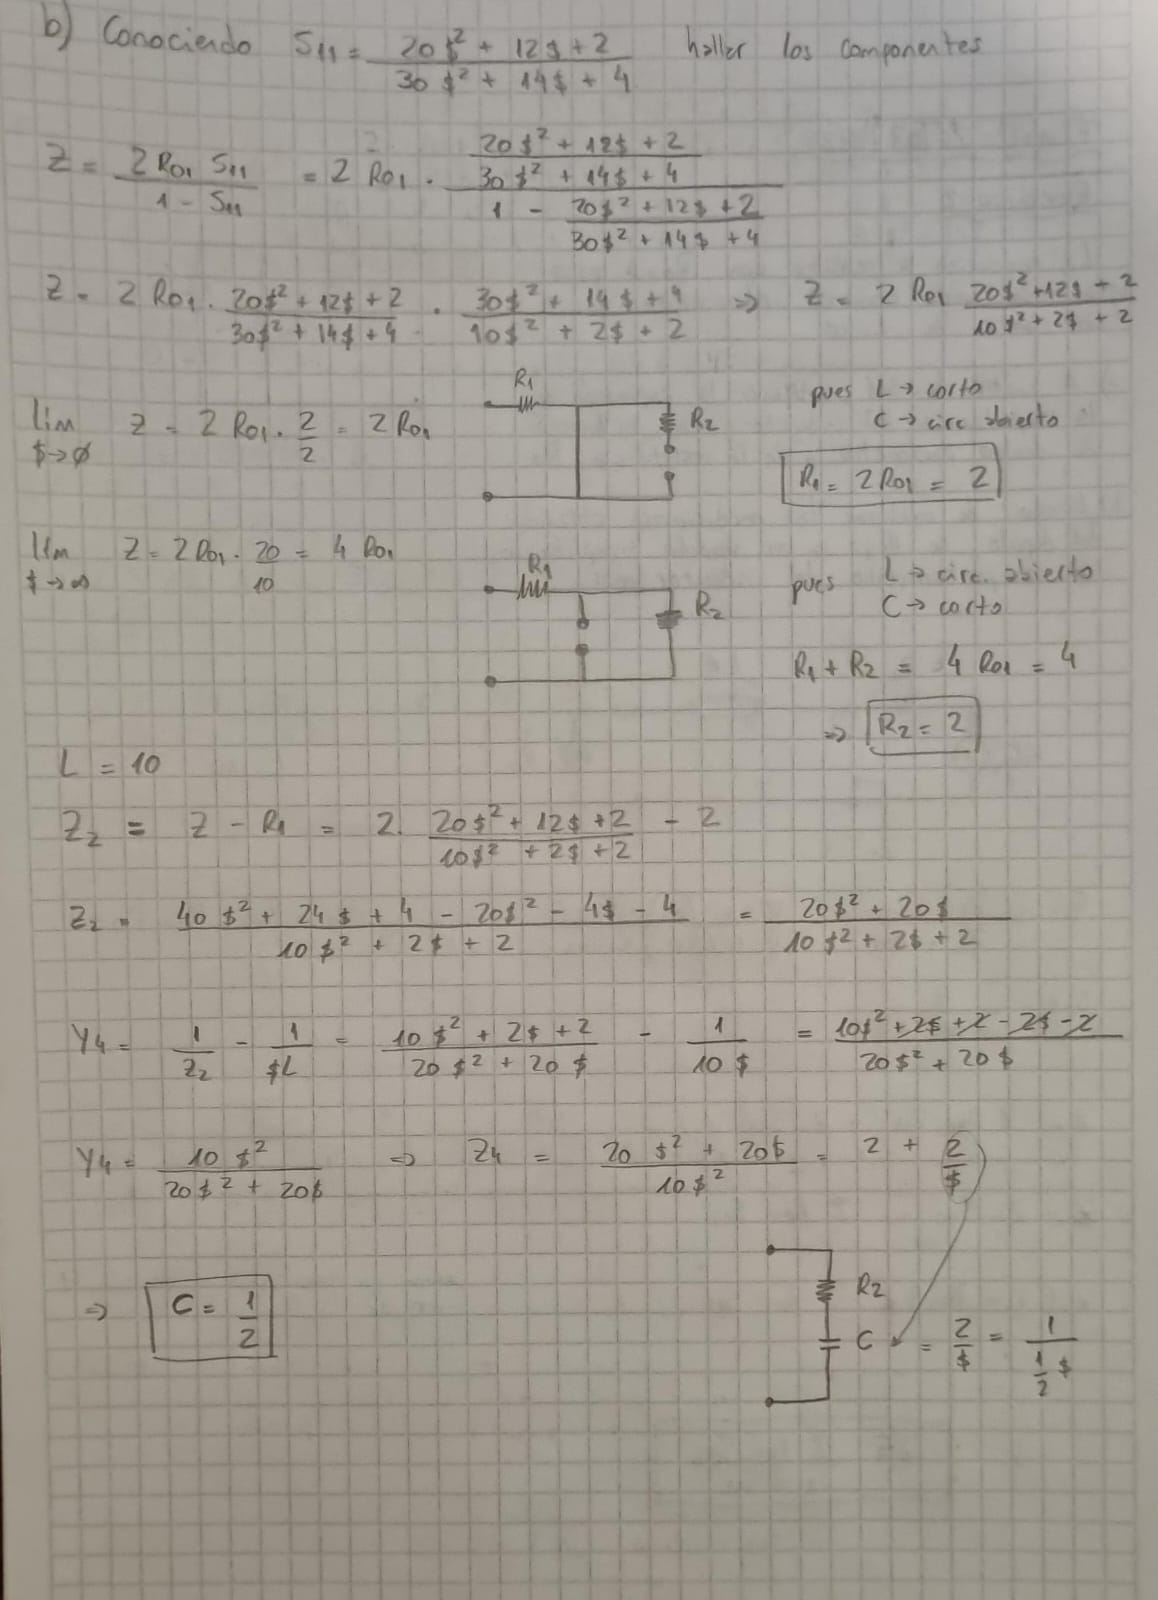 b) Conociendo S11 = (20$² + 12$ + 2) / (30$² + 14$ + 4) hallar los componentes
Z = 2 Ro1 S11 / (1 - S11) = 2 Ro1 · ((20$² + 12$ + 2) / (30$² + 14$ + 4)) / (1 - (20$² + 12$ + 2) / (30$² + 14$ + 4))
Z = 2 Ro1 · (20$² + 12$ + 2) / (30$² + 14$ + 4) · (30$² + 14$ + 4) / (10$² + 2$ + 2) => Z = 2 Ro1 (20$² + 12$ + 2) / (10$² + 2$ + 2)
R1
R2
pues L → corto
C → circ abierto
lim $→ø Z = 2 Ro1 · 2/2 = 2 Ro1
R1 = 2 Ro1 = 2
lim $→∞ Z = 2 Ro1 · 20/10 = 4 Ro1
R1
R2
pues L → circ. abierto
C → corto
R1 + R2 = 4 Ro1 = 4
=> R2 = 2
L = 10
Z2 = Z - R1 = 2. (20$² + 12$ + 2) / (10$² + 2$ + 2) - 2
Z2 = (40$² + 24$ + 4 - 20$² - 4$ - 4) / (10$² + 2$ + 2) = (20$² + 20$) / (10$² + 2$ + 2)
Y4 = 1/Z2 - 1/$L = (10$² + 2$ + 2) / (20$² + 20$) - 1 / 10$ = (10$² + 2$ + 2 - 2$ - 2) / (20$² + 20$)
Y4 = 10$² / (20$² + 20$) => Z4 = (20$² + 20$) / 10$² = 2 + 2/$
=> C = 1/2
R2
C = 2/$ = 1 / (1/2 $)